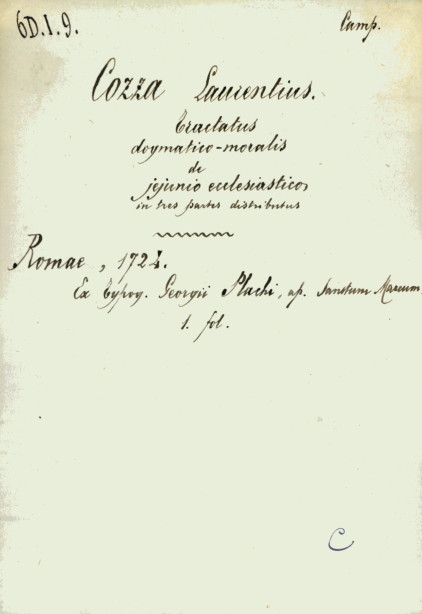 6D.1.9.
Camp.
Cozza Laurentius.
Tractatus
dogmatico-moralis
de
jejunio ecclesiastico,
in tres partes distributus
Romae, 1724.
Ex typog. Georgii Plachi, ap. Sanctum Marcum
1. fol.
C